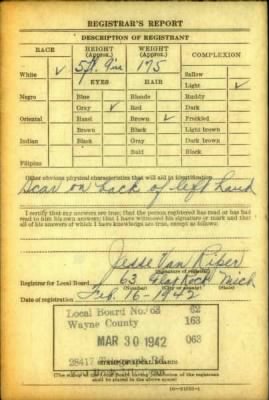 REGISTRAR'S REPORT
DESCRIPTION OF REGISTRANT
RACE
HEIGHT (Approx.)
WEIGHT (Approx.)
COMPLEXION
White ✓
5 ft. 9 in
175
Sallow
EYES
HAIR
Light ✓
Negro
Blue
Blonde
Ruddy
Gray ✓
Red
Dark
Oriental
Hazel
Brown ✓
Freckled
Brown
Black
Light brown
Indian
Black
Gray
Dark brown
Bald
Black
Filipino
Other obvious physical characteristics that will aid in identification
Scar on back of left hand
I certify that my answers are true; that the person registered has read or has had
read to him his own answers; that I have witnessed his signature or mark and that
all of his answers of which I have knowledge are true, except as follows:
Jesse Van Riper
(Signature of registrar)
Registrar for Local Board 63 Flat Rock Mich
(Number) (City or county) (State)
Date of registration Feb. 16-1942
Local Board No. 63 82
Wayne County 163
MAR 30 1942 063
28417
(STAMP OF LOCAL BOARD)
(The stamp of the Local Board having jurisdiction of the registrant
shall be placed in the above space)